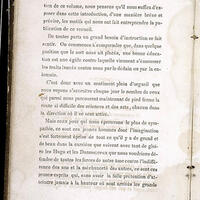 tion de ce volume, nous pensons qu'il nous suffira d'expo-
ser dans cette introduction, d'une manière brève et
précise, les motifs qui nous ont fait entreprendre la pu-
blication de ce recueil.
De toutes parts un grand besoin d'instruction se fait
sentir. On commence à comprendre que, dans quelque
position que le sort nous ait placés, une bonne éduca-
tion est une égide contre laquelle viennent s'émousser
les traits lancés contre nous par le dédain ou par la ca-
lomnie.
C'est donc avec un sentiment plein d'orgueil que
nous voyons s'accroître chaque jour le nombre de ceux
qui parmi nous parcourent maintenant de pied ferme la
route si difficile des sciences et des arts, chacun dans
la direction où il se sent attiré.
Mais ceux pour qui nous éprouvons le plus de sym-
pathie, ce sont ces jeunes hommes dont l'imagination
s'est fortement éprise de tout ce qu'il y a de grand et
de beau dans la carrière que suivent avec tant de gloi-
re les Hugo et les Dumas; ceux que nous voudrions dé-
fendre de toutes les forces de notre âme contre l'indiffé-
rence des uns et la méchanceté des autres, ce sont ces
jeunes esprits qui, sans avoir la folle prétention d'at-
teindre jamais à la hauteur où sont arrivés les grands